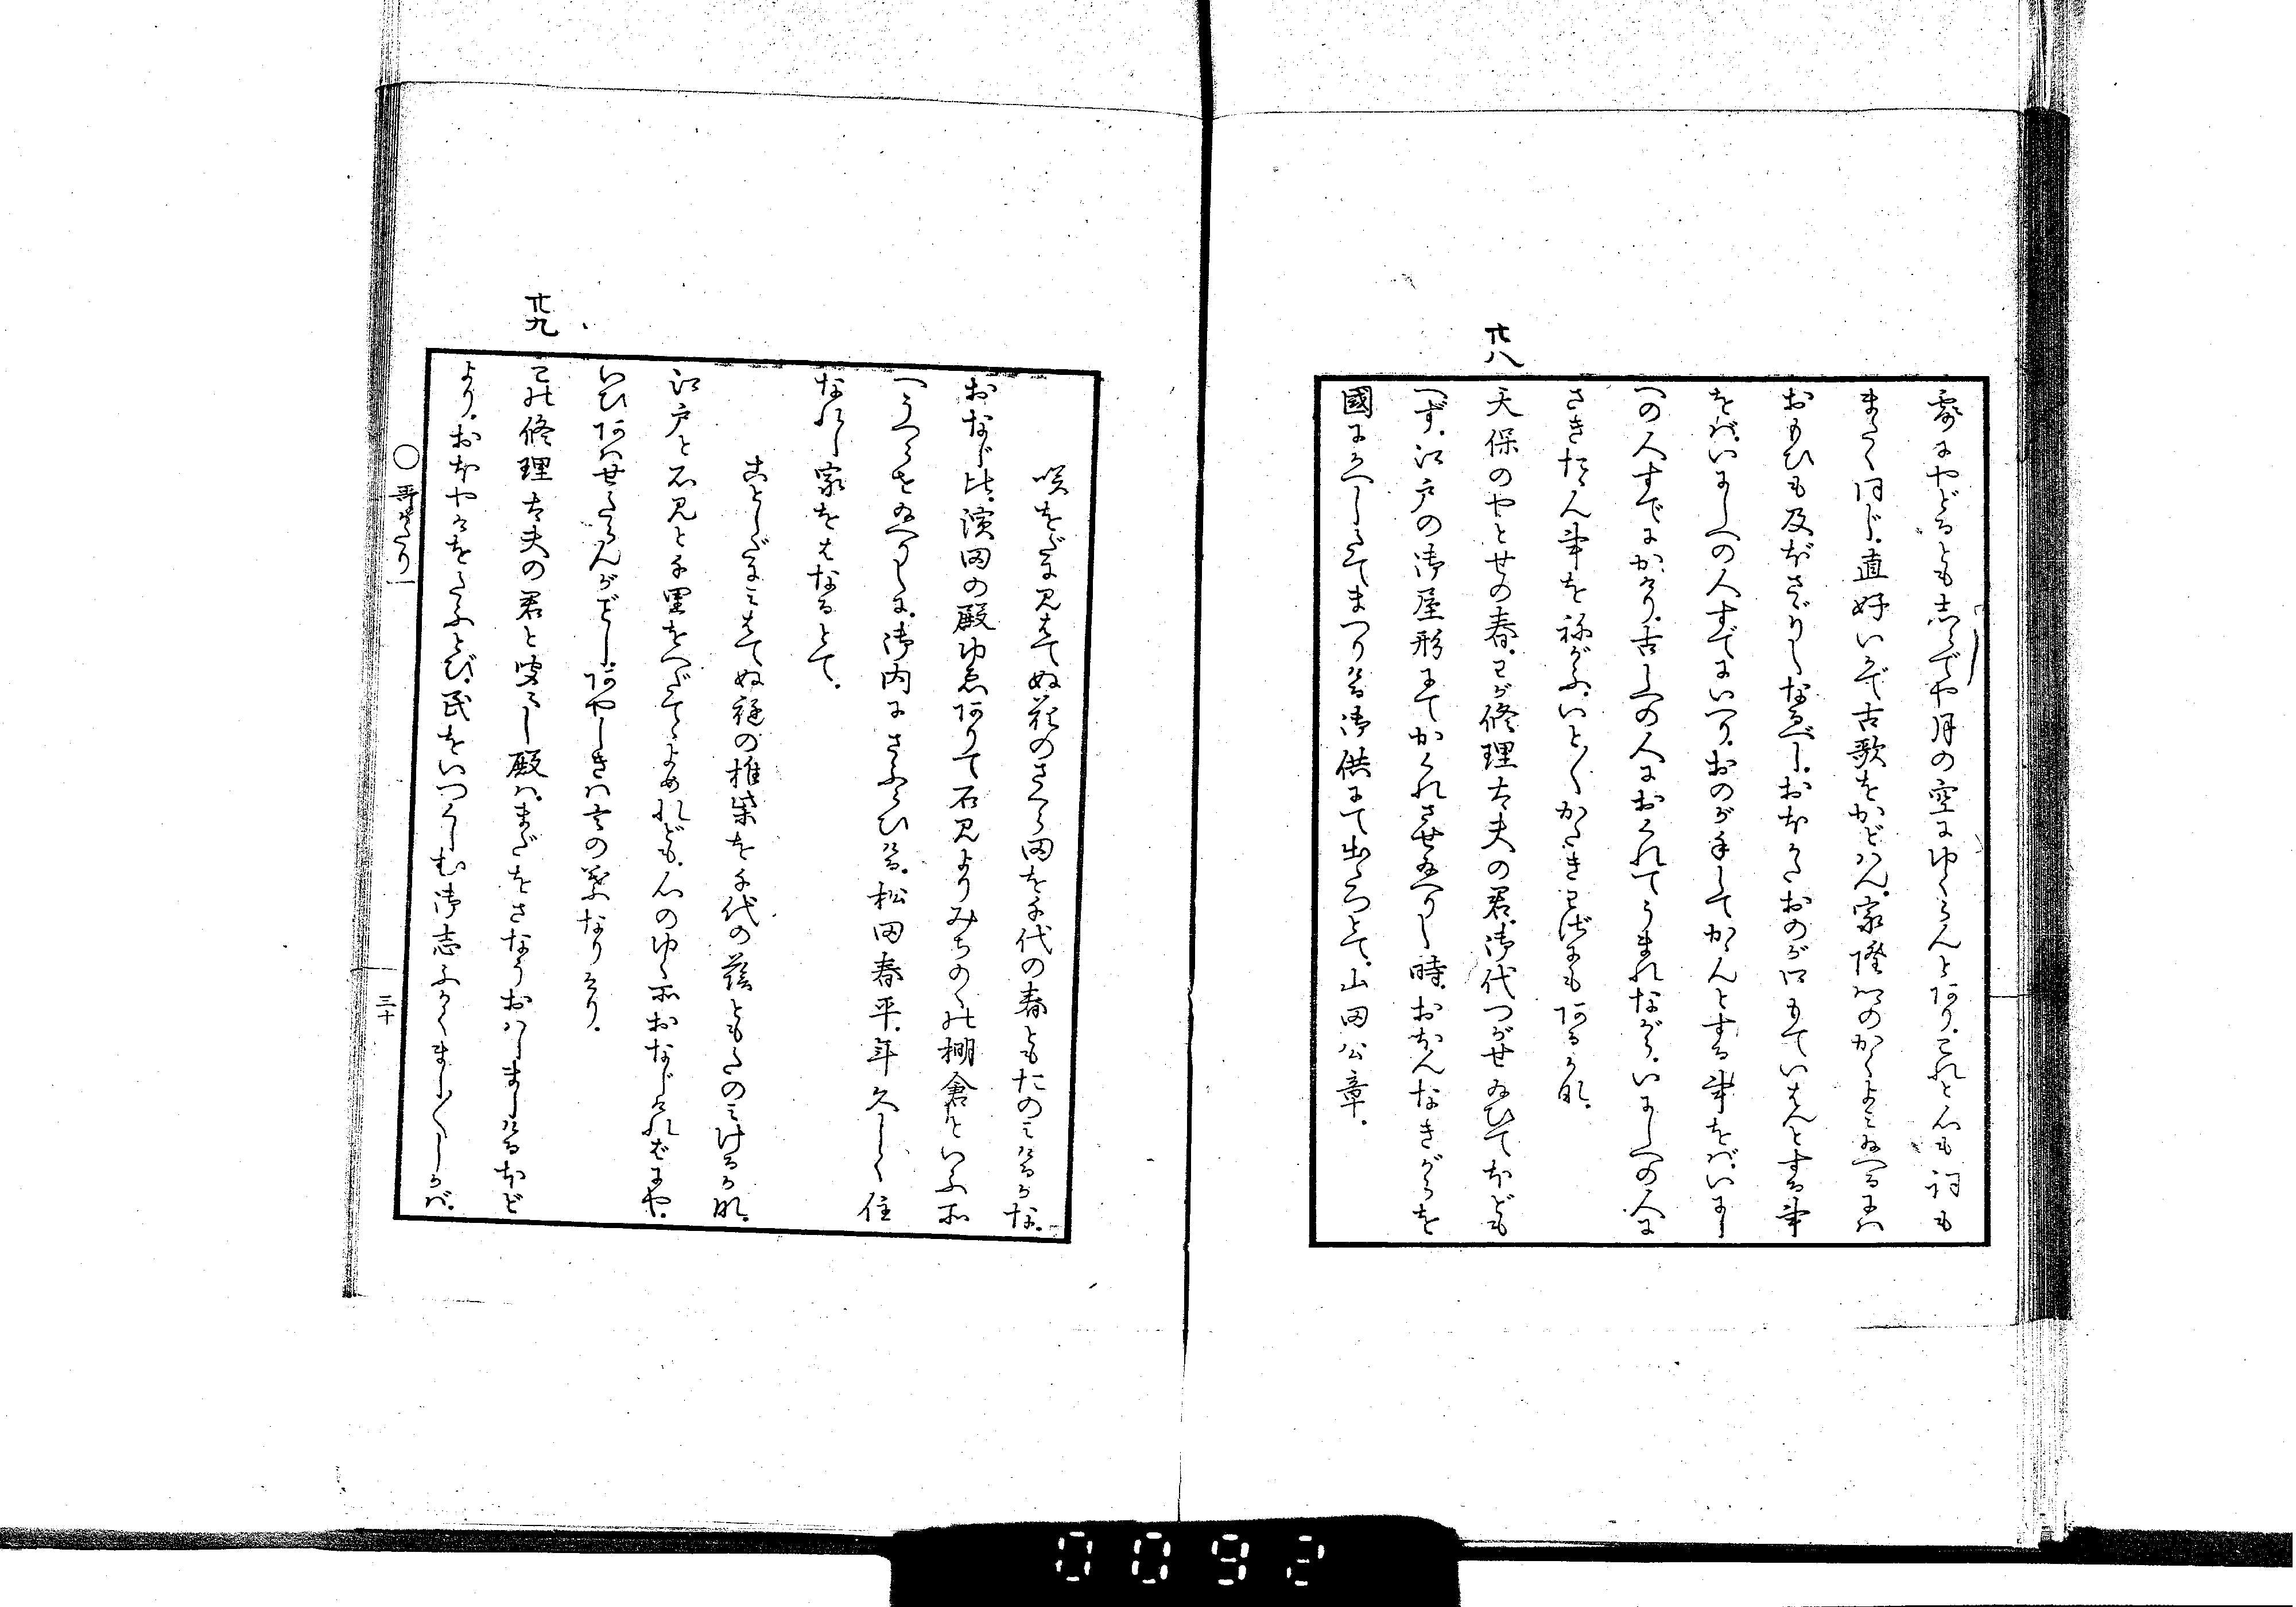 露にやどるとも志らでや月の空にゆくらんとあり。これと心も詞も
またく同じ。直好いかで古歌をかどはん。家隆はのかくよみ給へるには
おもひも及ばざりしなるべし。おほかたおのが口もていはんとする事
をば。いにしへの人すでにいへり。おのが手してかかんとする事をば。いにし
への人すでにかけり。古しへの人におくれてうまれながら。いにしへの人に
さきだたん事をねがふ。いと〱かたきわざにもあるかな。
廿八
天保のやとせの春。わが修理大夫の君。御代つがせ給ひてほども
へず。江戸の御屋形にてかくれさせ給へりし時。おほんなきがらを
國にかへしたてまつりける御供にて出たつとて。山田公章。
咲をだに見はてぬ花のさくら田を千代の春ともたのみけるかな。
おなじ比。濱田の殿ゆゑありて石見よりみちのくの棚倉といふ所
へうつらせ給へりしに。御内にさふらひける。松田春平。年久しく住
なれし家をはなるとて。
ことしだにみはてぬ庭の椎柴を千代の蔭ともたのみけるかな。
江戸と石見と千里をへだててよめれども。心のゆく所おなじければにや。
いひあはせたらんがごとし。あやしきは言の葉なりけり。
廿九
この修理大夫の君と聞えし殿は。まだをさなうおはしましけるほど
より。おほやけをたふとび。民をいつくしむ御志ふかくまし〱しかば。
〇哥がたり一
三十
0092